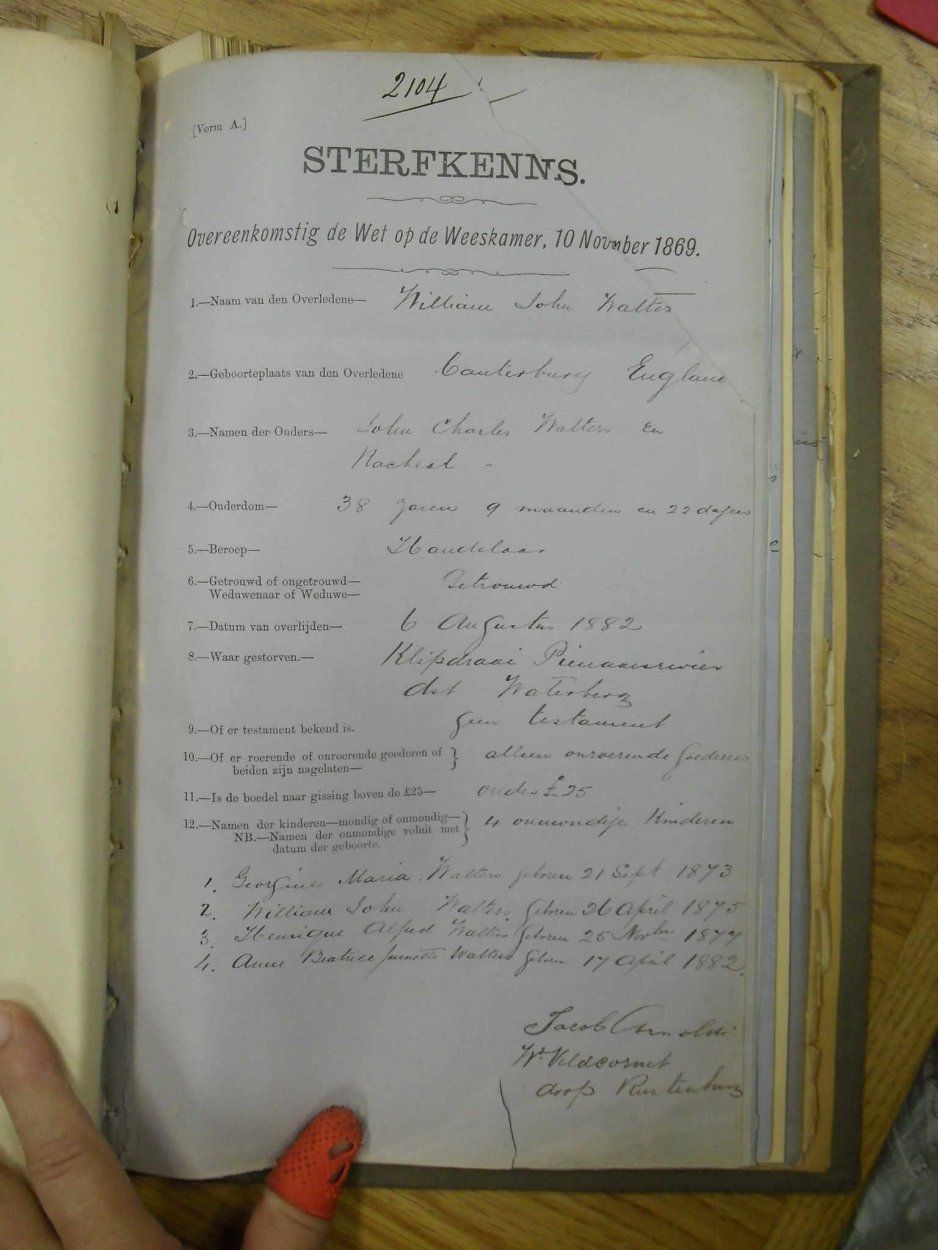 2104
[Vorm A.]
STERFKENNIS.
Overeenkomstig de Wet op de Weeskamer, 10 November 1869.
1.—Naam van den Overledene— William John Walters
2.—Geboorteplaats van den Overledene Canterbury England
3.—Namen der Ouders— John Charles Walters en
Racheal -
4.—Ouderdom— 38 Jaren 9 maanden en 22 dagen
5.—Beroep— Handelaar
6.—Getrouwd of ongetrouwd— Getrouwd
Weduwenaar of Weduwe—
7.—Datum van overlijden— 6 Augustus 1882
8.—Waar gestorven.— Klipdraai Pienaarsrivier
dst Waterberg
9.—Of er testament bekend is. geen testament
10.—Of er roerende of onroerende goederen of } alleen onroerende goederen
beiden zijn nagelaten—
11.—Is de boedel naar gissing boven de £25— onder £25
12.—Namen der kinderen—mondig of onmondig— } 4 onmondige Kinderen
NB.—Namen der onmondige voluit met
datum der geboorte.
1. Georgina Maria Walters geboren 21 Sept 1873
2. William John Walters geboren 26 April 1875
3. Henrique Alfred Walters geboren 25 Novbr 1877
4. Anne Beatrice Walters geboren 17 April 1882.
Jacob Arnoldi
Wr. Veldcornet
dorp Rustenburg